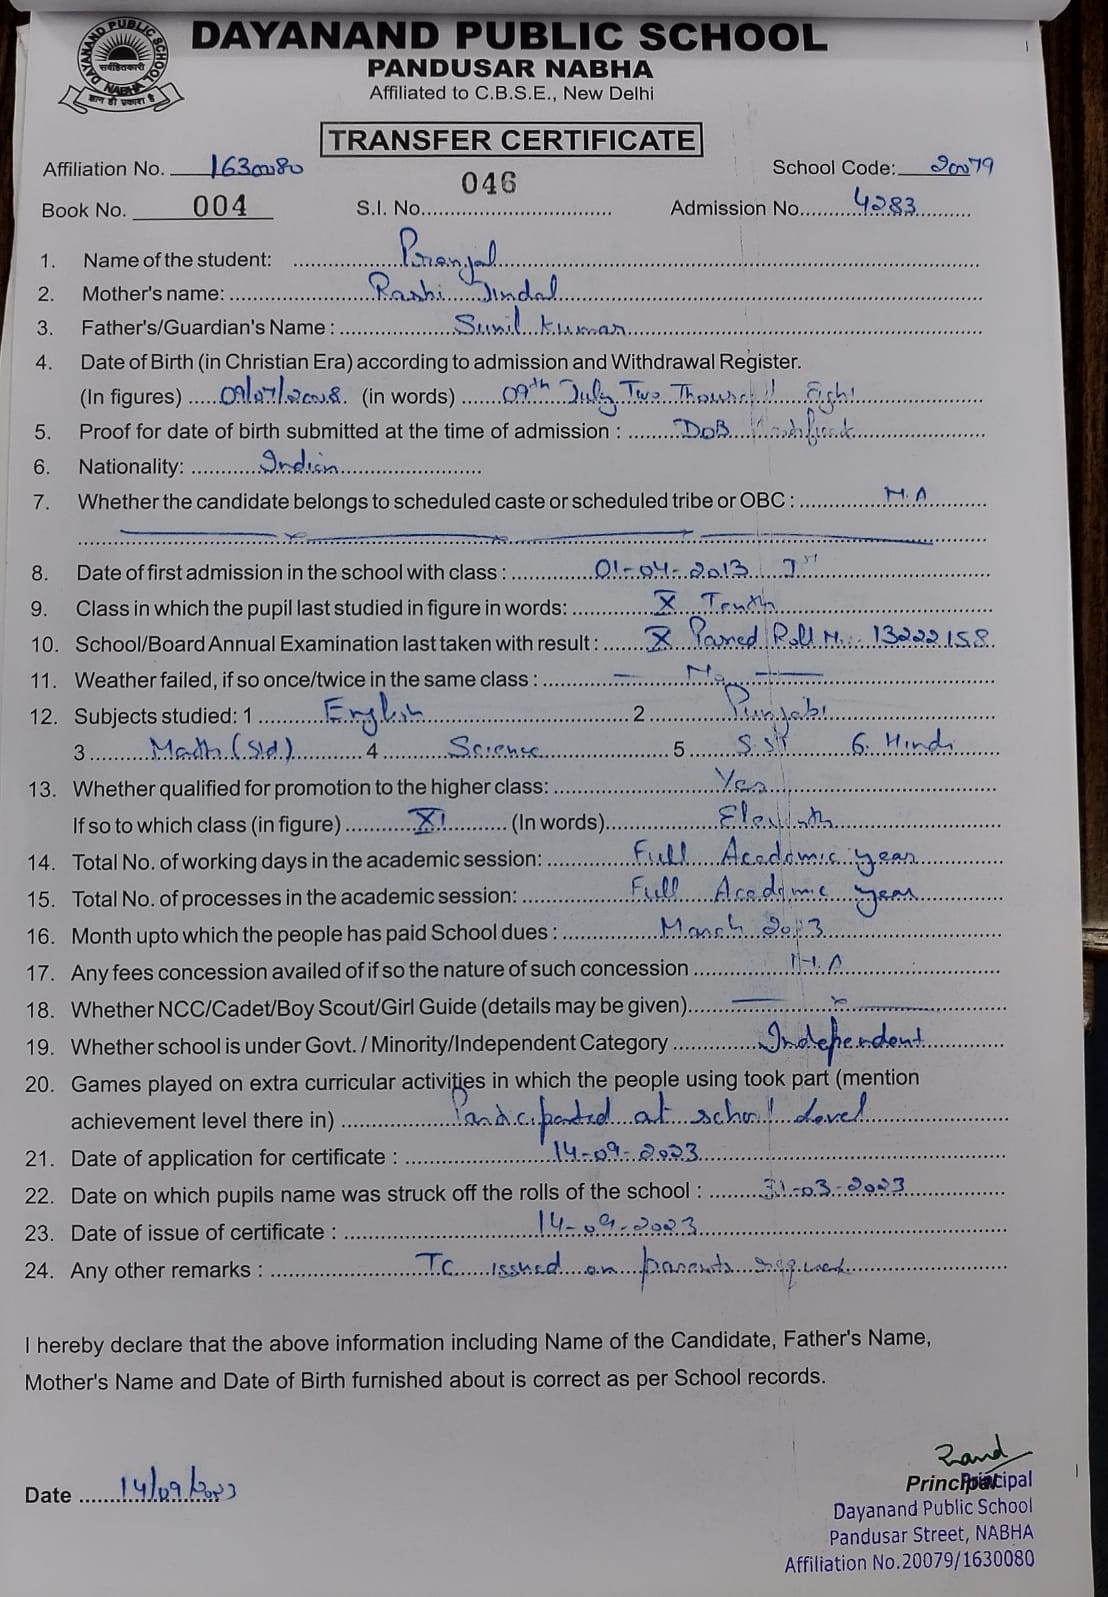 DAYANAND PUBLIC SCHOOL
PANDUSAR NABHA
Affiliated to C.B.S.E., New Delhi
DAYANAND PUBLIC SCHOOL
NABHA
TRANSFER CERTIFICATE
Affiliation No. 1630080 School Code: 20079
Book No. 004 S.I. No. 046 Admission No. 4283
1. Name of the student: Pranjal
2. Mother's name: Rashi Jindal
3. Father's/Guardian's Name : Sunil Kumar
4. Date of Birth (in Christian Era) according to admission and Withdrawal Register.
(In figures) 09/07/2008 (in words) 09th July Two Thousand Eight
5. Proof for date of birth submitted at the time of admission : DOB Certificate
6. Nationality: Indian
7. Whether the candidate belongs to scheduled caste or scheduled tribe or OBC : N.A
8. Date of first admission in the school with class : 01-04-2013 Ist
9. Class in which the pupil last studied in figure in words: X Tenth
10. School/Board Annual Examination last taken with result : X Passed Roll No. 13222158
11. Weather failed, if so once/twice in the same class : No
12. Subjects studied: 1 English 2 Punjabi
3 Math (Std) 4 Science 5 S.St 6. Hindi
13. Whether qualified for promotion to the higher class: Yes
If so to which class (in figure) XI (In words) Eleventh
14. Total No. of working days in the academic session: Full Academic year
15. Total No. of processes in the academic session: Full Academic year
16. Month upto which the people has paid School dues : March 2023
17. Any fees concession availed of if so the nature of such concession N.A
18. Whether NCC/Cadet/Boy Scout/Girl Guide (details may be given)
19. Whether school is under Govt. / Minority/Independent Category Independent
20. Games played on extra curricular activities in which the people using took part (mention
achievement level there in) Participated at school level
21. Date of application for certificate : 14-09-2023
22. Date on which pupils name was struck off the rolls of the school : 31-03-2023
23. Date of issue of certificate : 14-09-2023
24. Any other remarks : TC issued on parents request
I hereby declare that the above information including Name of the Candidate, Father's Name,
Mother's Name and Date of Birth furnished about is correct as per School records.
Date 14/09/2023
Principal
Principal
Dayanand Public School
Pandusar Street, NABHA
Affiliation No.20079/1630080